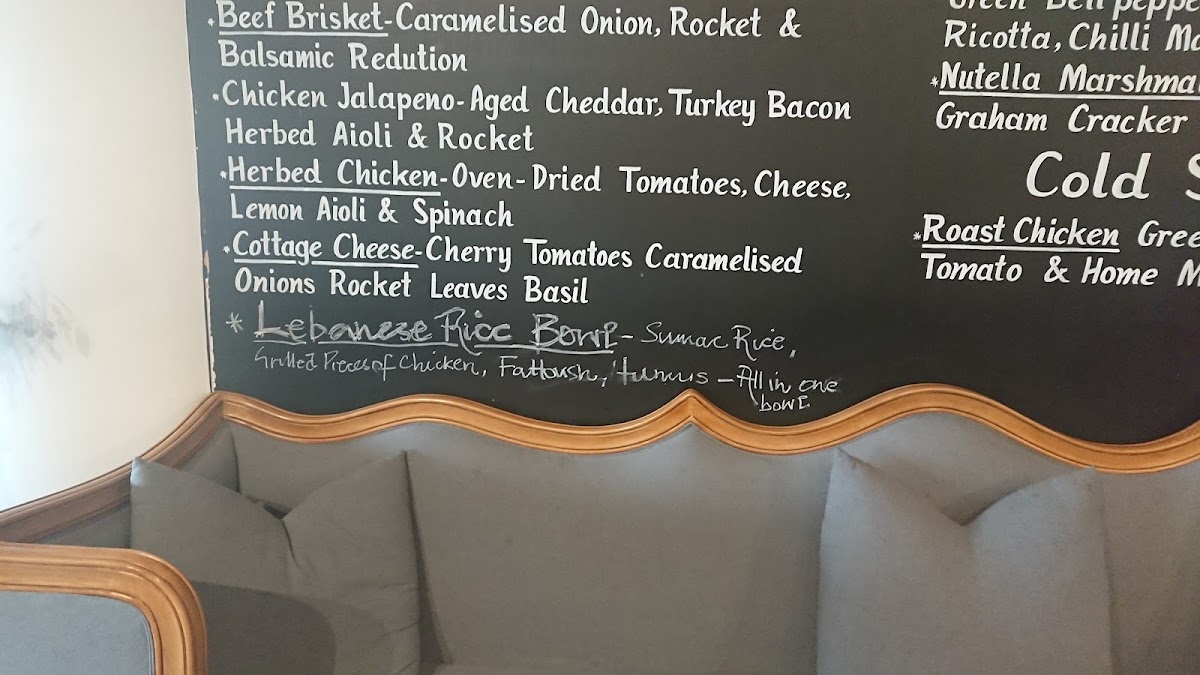 *Beef Brisket-Caramelised Onion, Rocket &
Balsamic Redution
*Chicken Jalapeno-Aged Cheddar, Turkey Bacon
Herbed Aioli & Rocket
*Herbed Chicken-Oven-Dried Tomatoes, Cheese,
Lemon Aioli & Spinach
*Cottage Cheese-Cherry Tomatoes Caramelised
Onions Rocket Leaves Basil
* Lebanese Rice Bowl - Sumac Rice,
Grilled Pieces of Chicken, Fattoush, Humus - All in one
bowl
Green Bell
Ricotta, Chilli
*Nutella
Graham Cracker
Cold
*Roast Chicken
Tomato & Home